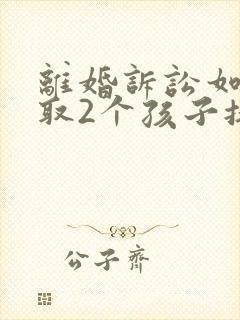 離婚訴訟如
取2个孩子扶
公子齊